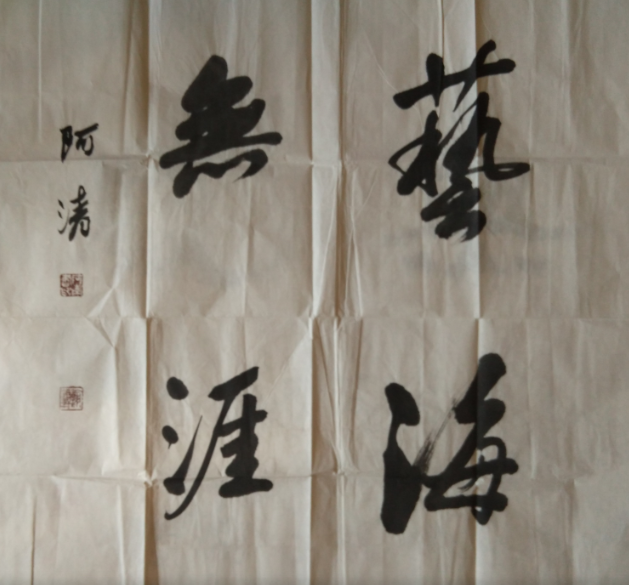 藝海
無涯
阿清